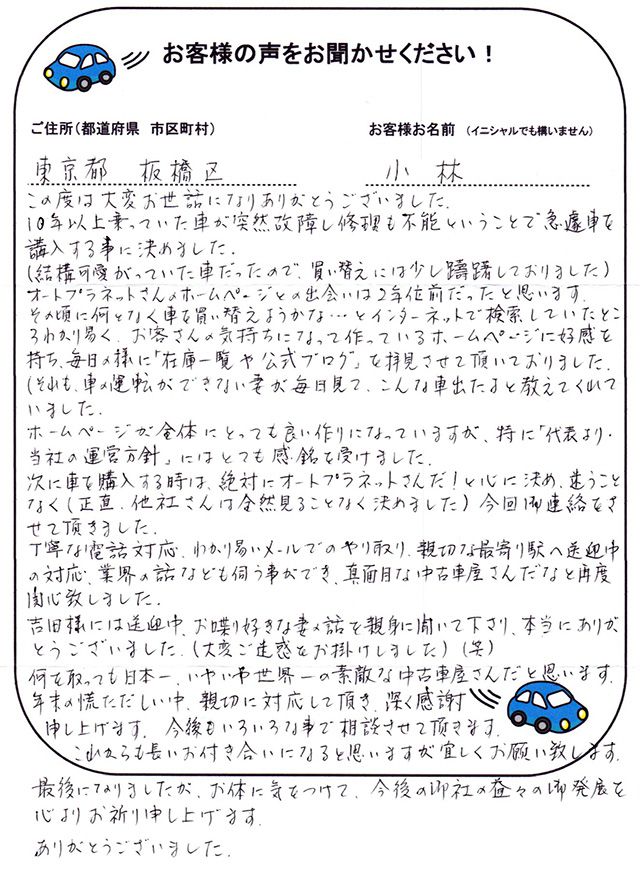 お客様の声をお聞かせください!
ご住所(都道府県 市区町村) お客様お名前 (イニシャルでも構いません)
東京都 板橋区 小林
この度は大変お世話になりありがとうございました.
10年以上乗っていた車が突然故障し修理も不能ということで急遽車を
購入する事に決めました.
(結構可愛がっていた車だったので、買い替えには少し躊躇しておりました)
オートプラネットさんのホームページとの出会いは2年位前だったと思います.
その頃に何となく車を買い替えようかな…とインターネットで検索していたとこ
ろわかり易く、お客さんの気持ちになって作っているホームページに好感を
持ち、毎日の様に「在庫一覧や公式ブログ」を拝見させて頂いておりました.
(それも、車の運転ができない妻が毎日見て、こんな車出たよと教えてくれて
いました.
ホームページが全体にとっても良い作りになっていますが、特に「代表より・
当社の運営方針」にはとても感銘を受けました.
次に車を購入する時は、絶対にオートプラネットさんだ!と心に決め、迷うこと
なく(正直、他社さんは全然見ることなく決めました)今回御連絡をさ
せて頂きました.
丁寧な電話対応、わかり易いメールでのやり取り、親切な最寄り駅へ送迎中
の対応、業界の話なども伺う事ができ、真面目な中古車屋さんだなと再度
関心致しました.
吉田様には送迎中、お喋り好きな妻の話を親身に聞いて下さり、本当にありが
とうございました.(大変ご迷惑をお掛けしました)(笑)
何を取っても日本一、いやいや世界一の素敵な中古車屋さんだと思います.
年末の慌ただしい中、親切に対応して頂き、深く感謝
申し上げます. 今後もいろいろな事で相談させて頂きます.
これからも長いお付き合いになると思いますが宜しくお願い致します.
最後になりましたが、お体に気をつけて、今後の御社の益々の御発展を
心よりお祈り申し上げます.
ありがとうございました.